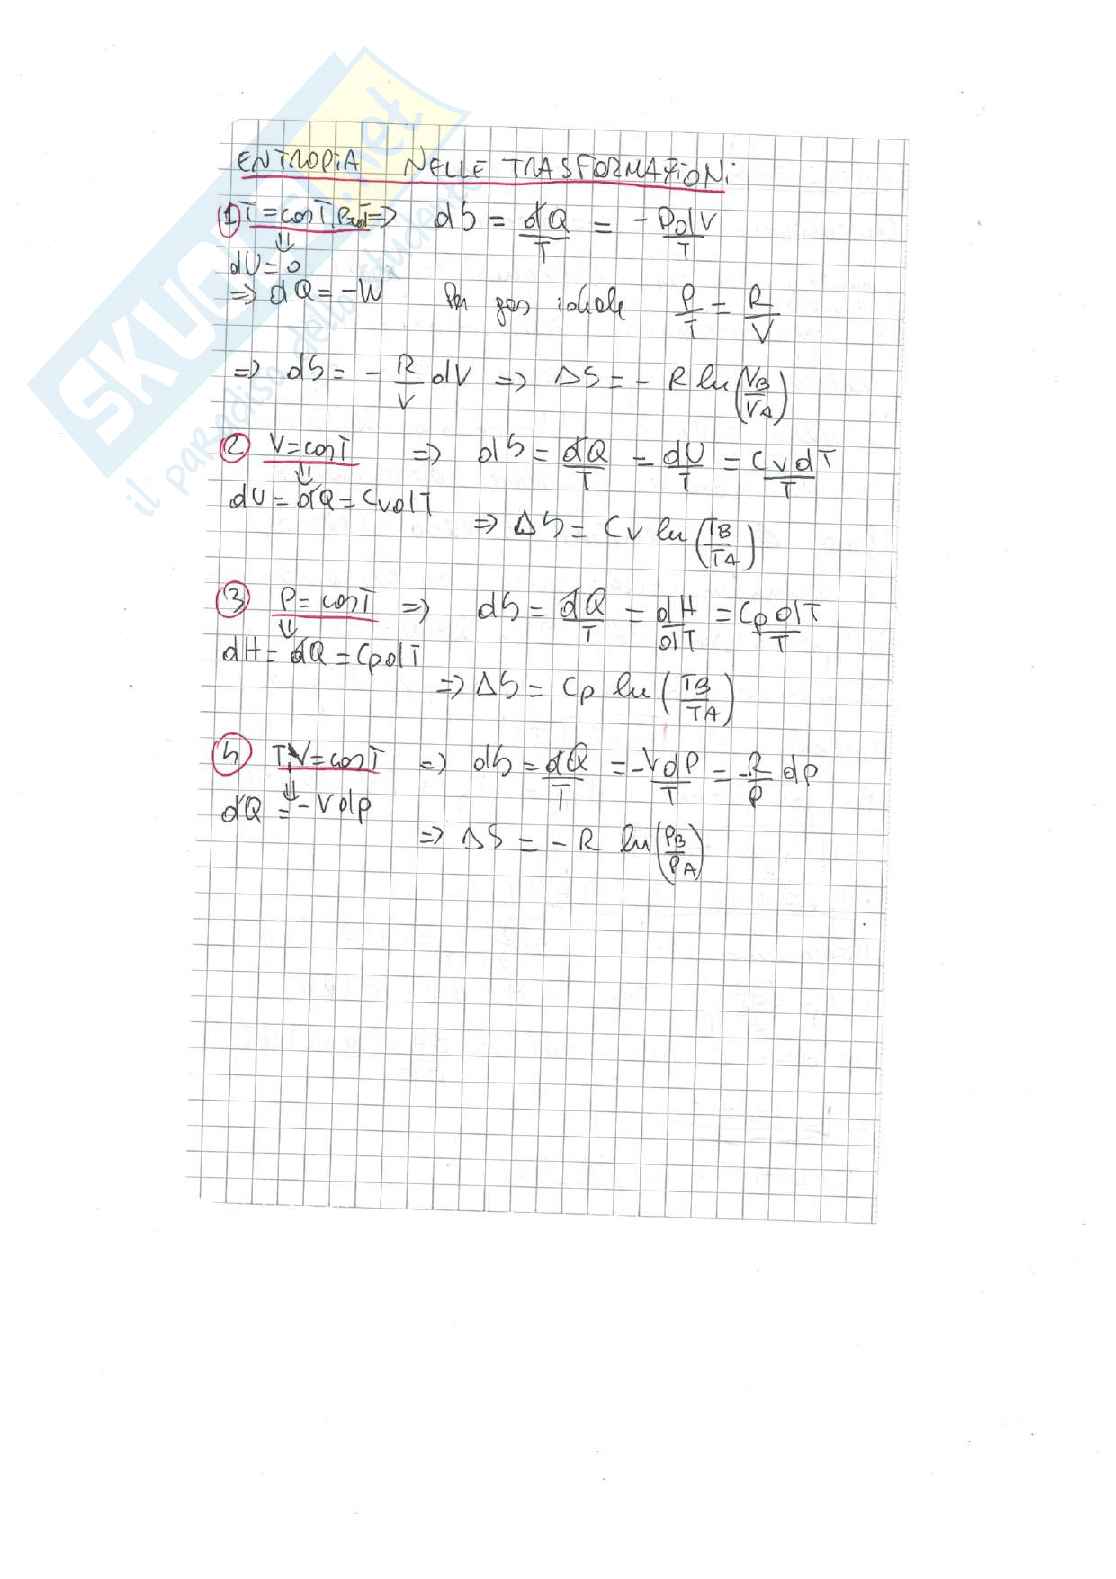 ENTROPIA NELLE TRASFORMAZIONi
1) T=cosT, P=cosT => dS = đQ/T = -PdV/T
⇓
dU=0
=> đQ=-W Per gas ideale P/T = R/V
=> dS = - R/V dV => ΔS = - R ln(VB/VA)
2 V=cosT => dS = đQ/T = dU/T = CvdT/T
⇓
dU = đQ = CvdT
=> ΔS = Cv ln(TB/TA)
3 P=cosT => dS = đQ/T = dH/dT = CpdT/T
⇓
dH = đQ = CpdT
=> ΔS = Cp ln(TB/TA)
4 T,V=cosT => dS = đQ/T = -VdP/T = -R/P dP
⇓
đQ = -Vdp
=> ΔS = -R ln(PB/PA)
SKUOLA.net
il paradiso dello studente